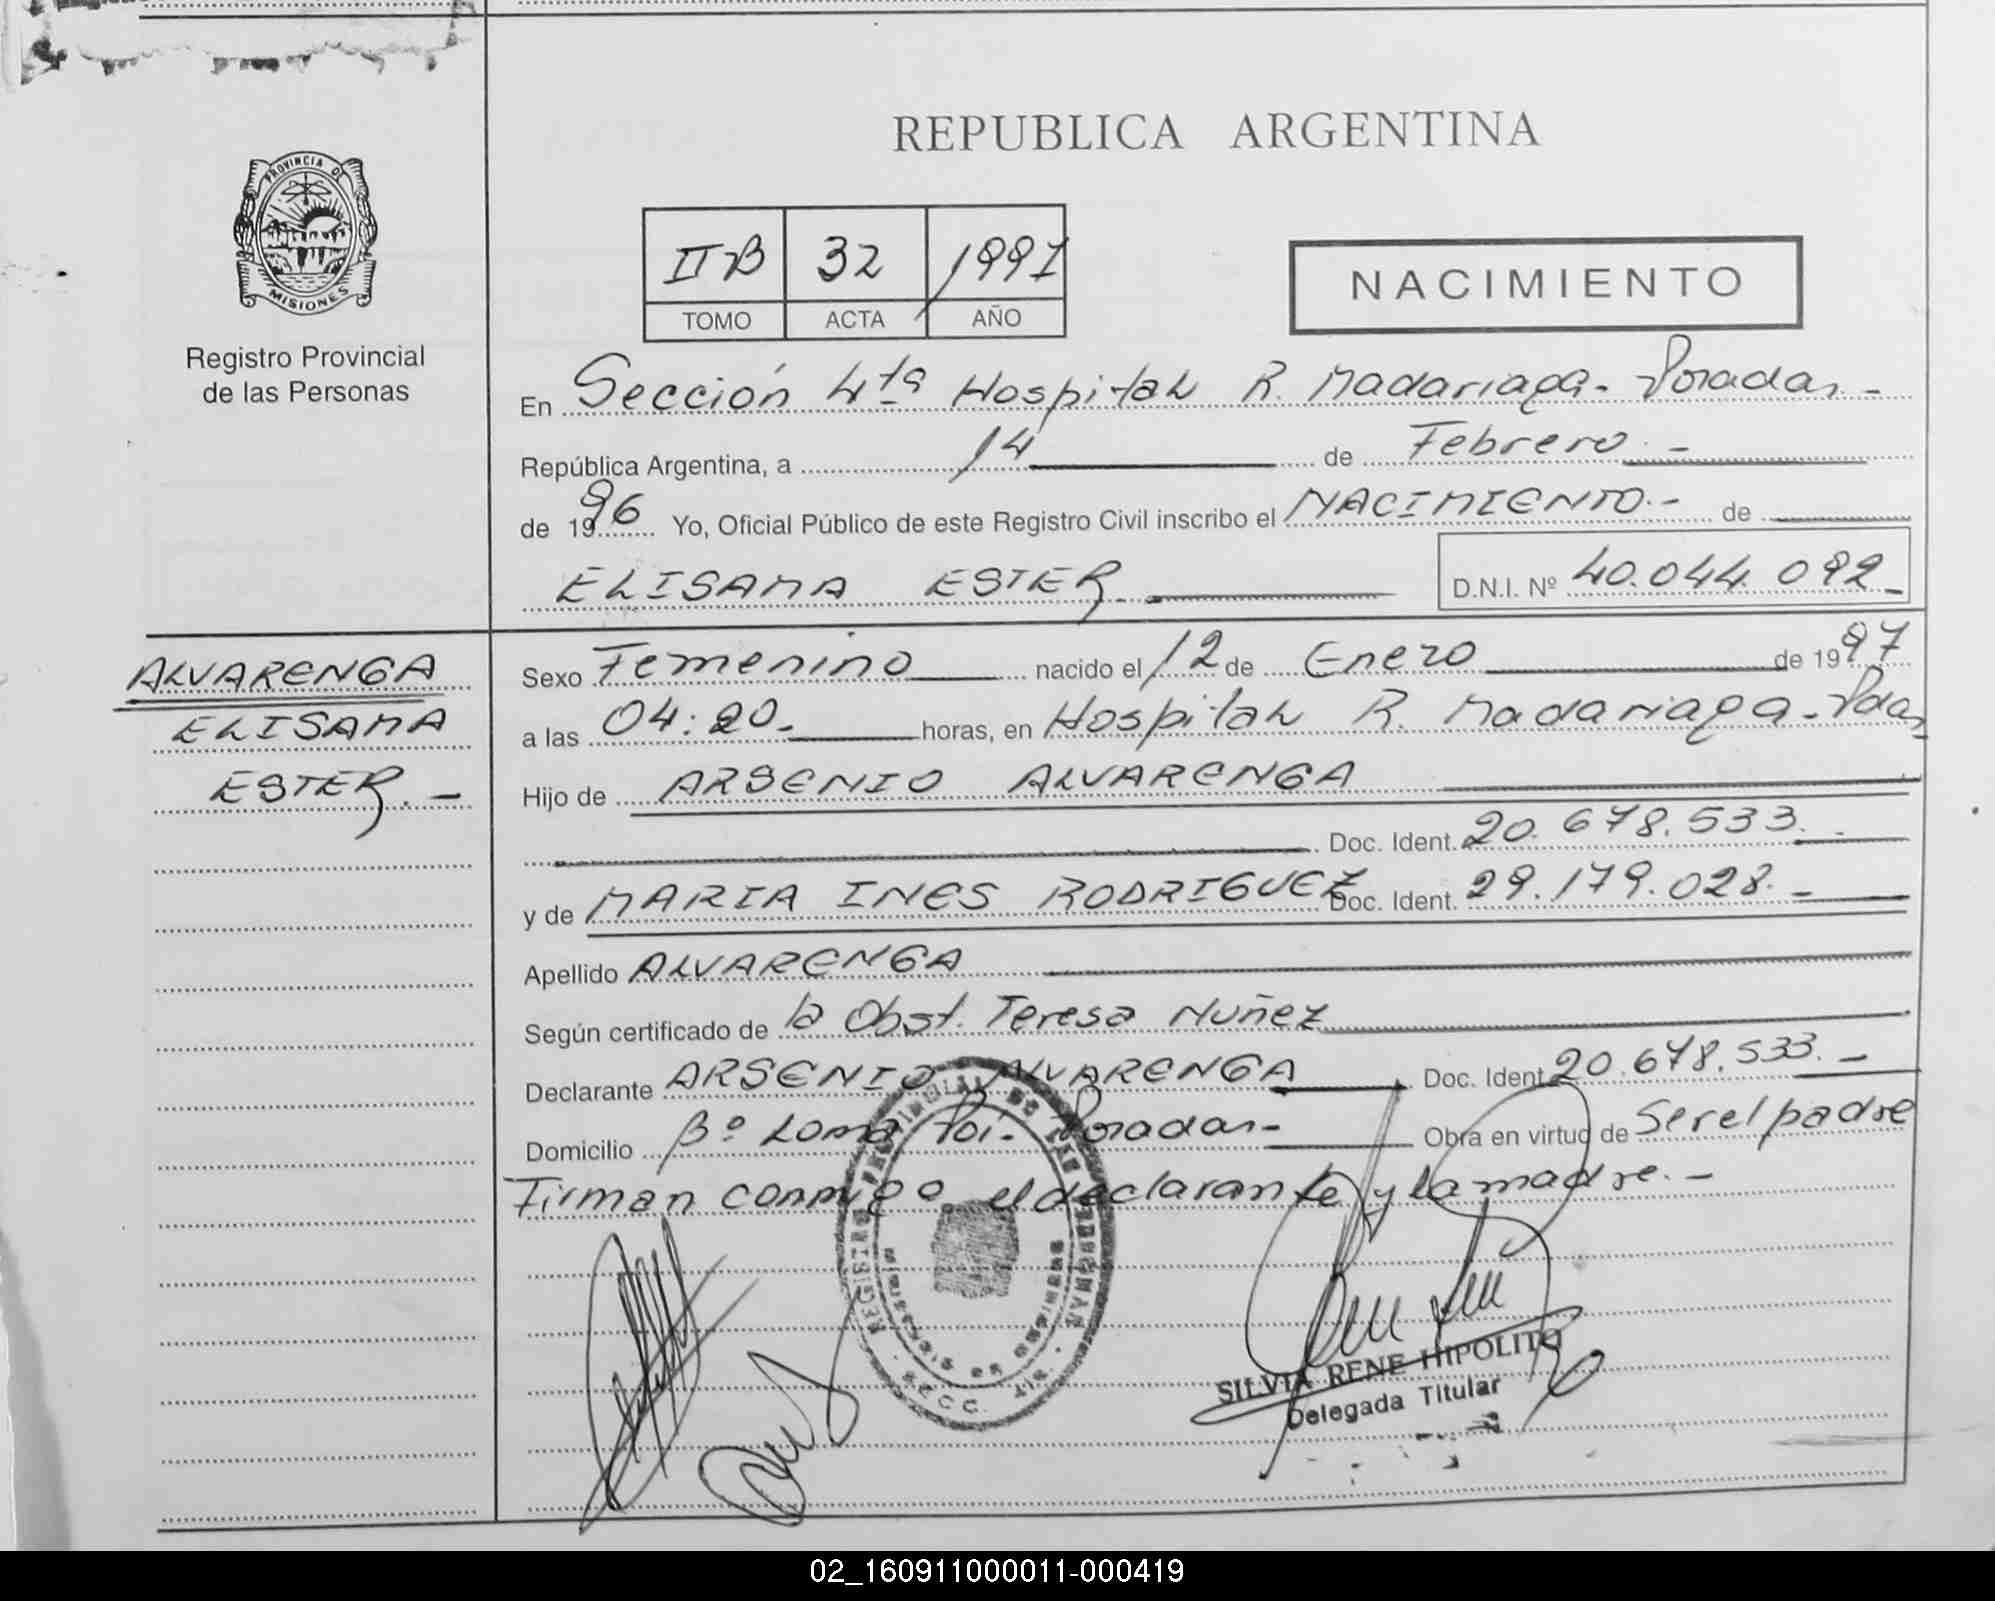 REPUBLICA ARGENTINA
PROVINCIA DE
MISIONES
Registro Provincial
de las Personas
II B 32 1997
TOMO ACTA AÑO
NACIMIENTO
En Sección 4ta Hospital R. Madariaga - Posadas -
República Argentina, a 14 de Febrero -
de 1996 Yo, Oficial Público de este Registro Civil inscribo el NACIMIENTO - de
ELISAMA ESTER D.N.I. Nº 40.044.092 -
ALVARENGA
ELISAMA
ESTER. -
Sexo Femenino nacido el 12 de Enero de 1997
a las 04:20 - horas, en Hospital R. Madariaga - Pdas
Hijo de ARSENIO ALVARENGA
Doc. Ident. 20.678.533. -
y de MARIA INES RODRIGUEZ Doc. Ident. 29.179.028. -
Apellido ALVARENGA
Según certificado de la Obst. Teresa Nuñez
Declarante ARSENIO ALVARENGA Doc. Ident. 20.678.533. -
Domicilio Bº Loma Poi - Posadas - Obra en virtud de Ser el padre
Firman conmigo el declarante y la madre. -
SILVIA RENE HIPOLITO
Delegada Titular
02_160911000011-000419